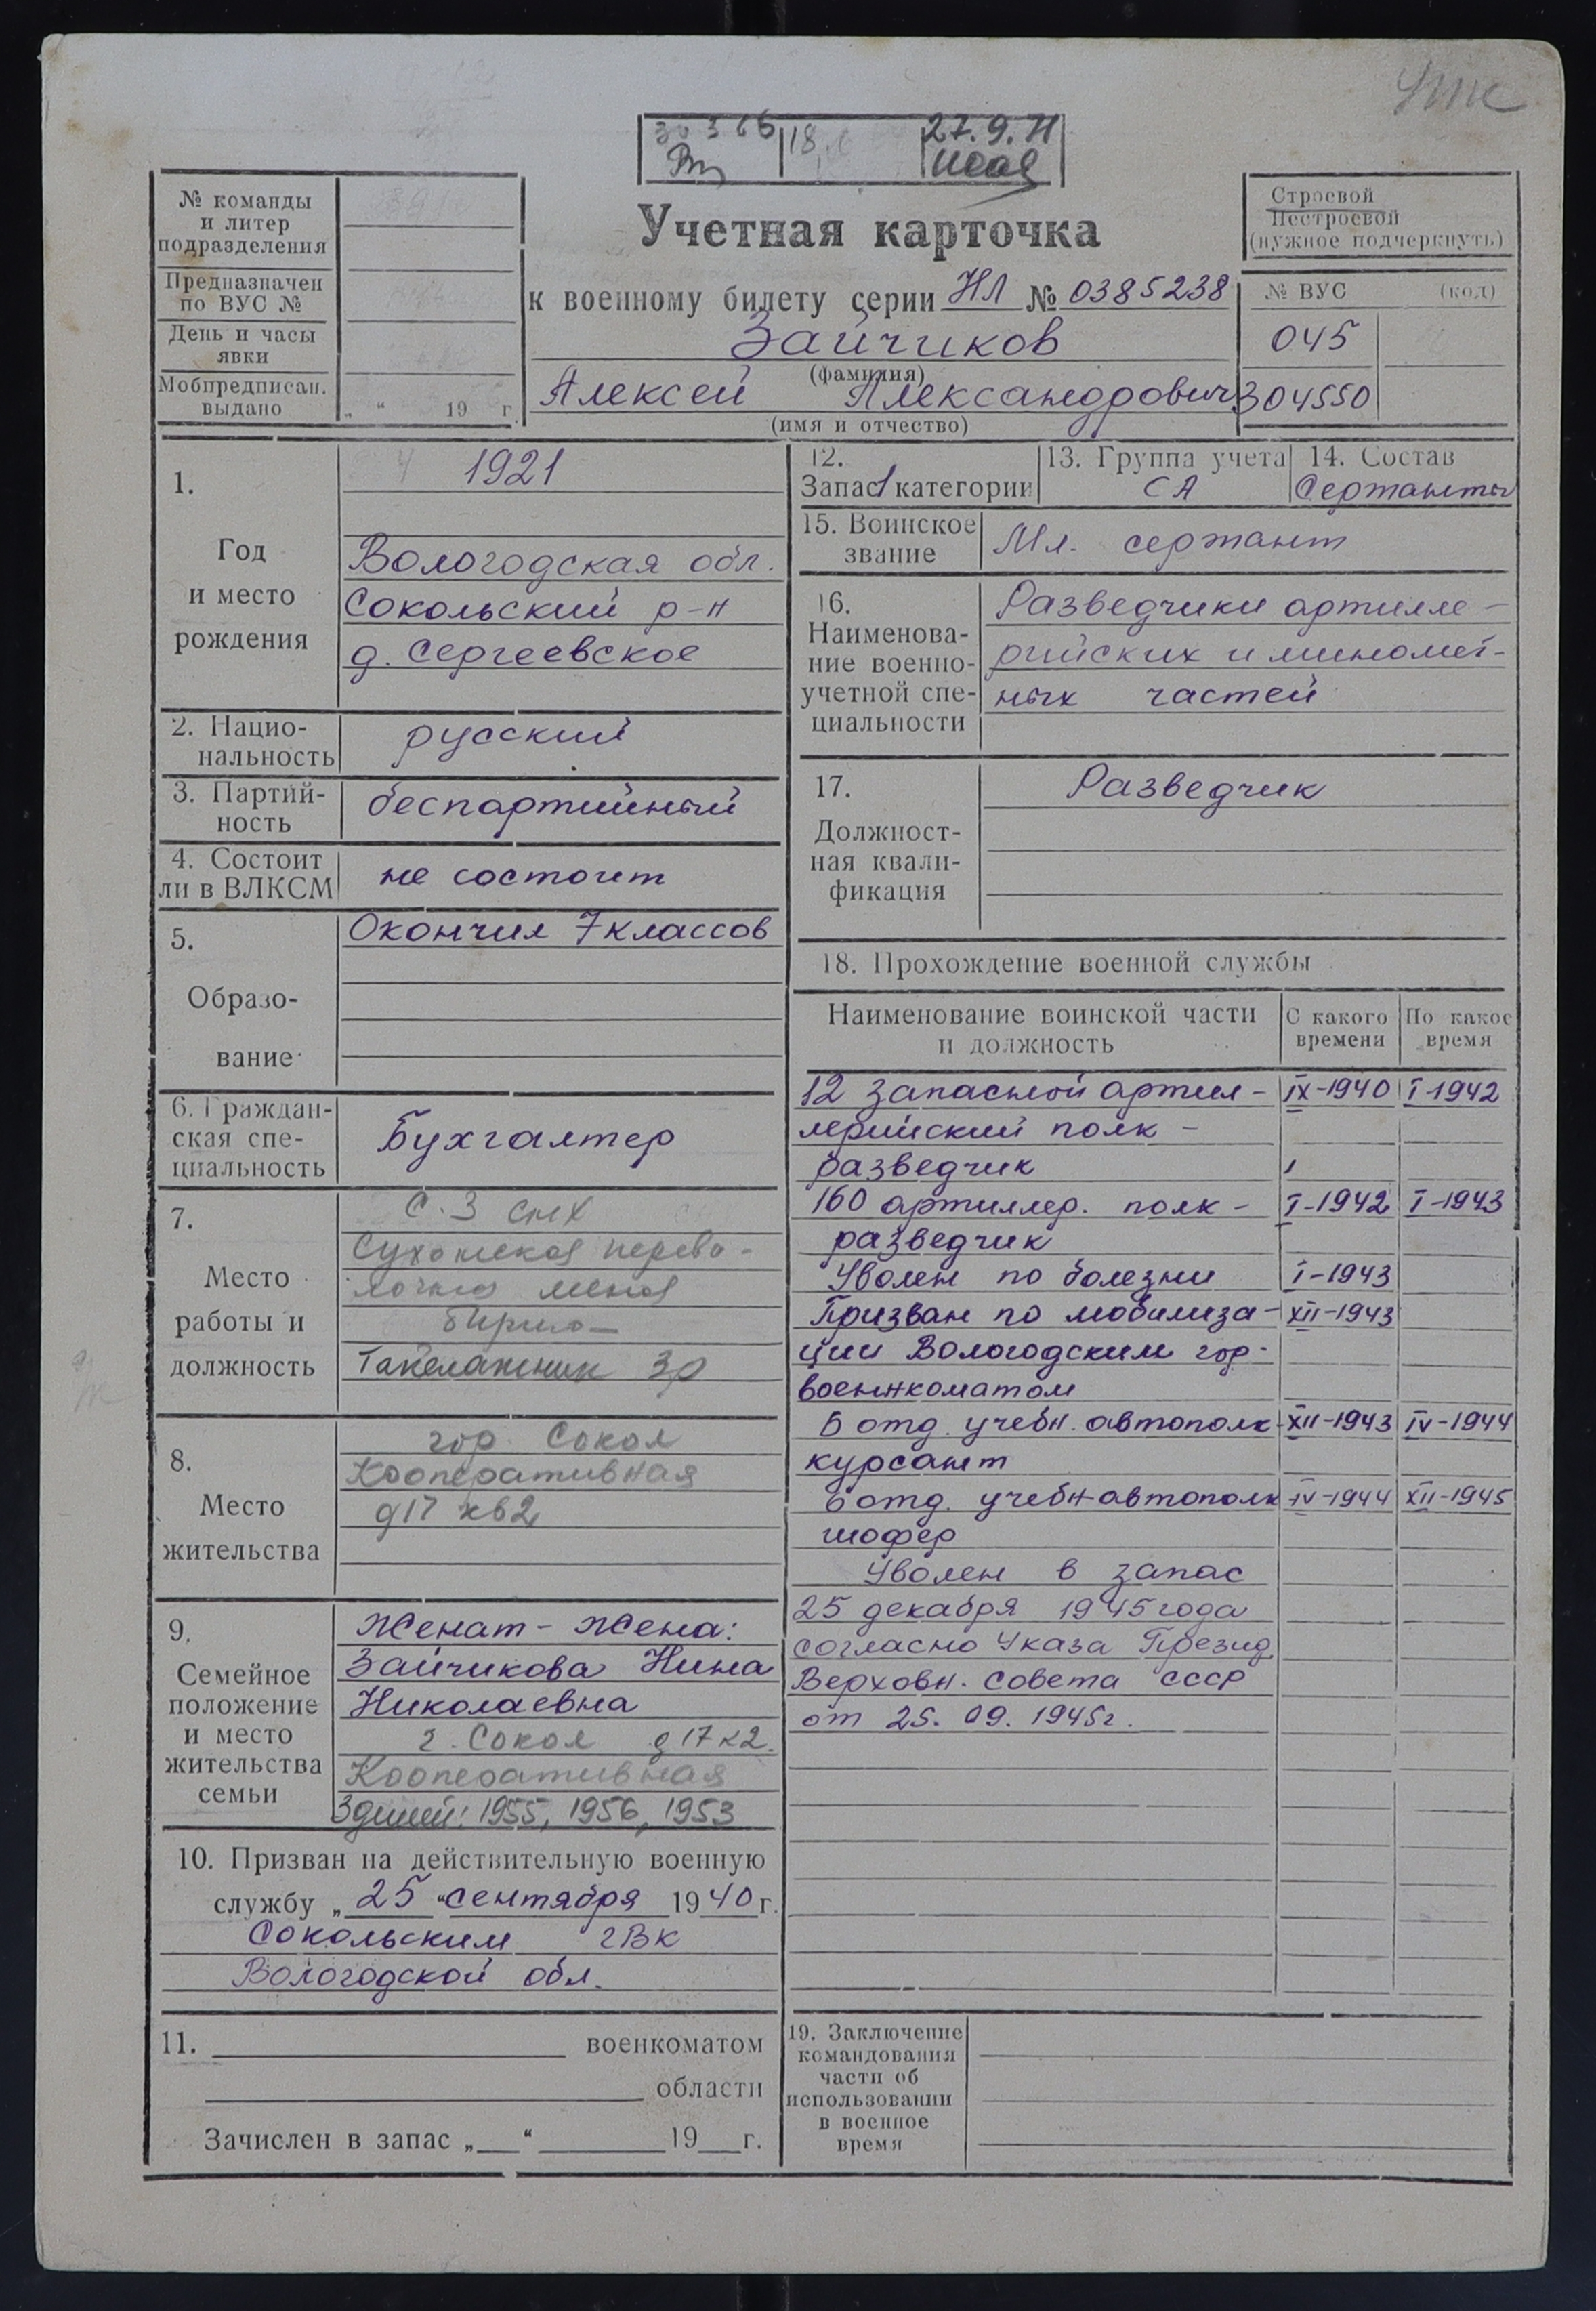 27.9.71
№ команды
и литер
подразделения
Предназначен
по ВУС №
День и часы
явки
Мобпредписан.
выдано
„ “ 19 г.
Учетная карточка
к военному билету серии НЛ № 0385238
Зайчиков
(фамилия)
Алексей Александрович
(имя и отчество)
Строевой
Нестроевой
(нужное подчеркнуть)
№ ВУС (код)
045
304550
1.
Год
и место
рождения
1921
Вологодская обл.
Сокольский р-н
д. Сергеевское
2. Нацио-
нальность
русский
3. Партий-
ность
беспартийный
4. Состоит
ли в ВЛКСМ
не состоит
5.
Образо-
вание
Окончил 7 классов
6. Граждан-
ская спе-
циальность
Бухгалтер
7.
Место
работы и
должность
Такелажник 3р
8.
Место
жительства
гор. Сокол
Кооперативная
д17 кв2
9.
Семейное
положение
и место
жительства
семьи
Женат - Жена:
Зайчикова Нина
Николаевна
г. Сокол д 17 к2.
Кооперативная
3 детей: 1955, 1956, 1953
10. Призван на действительную военную
службу „25“ сентября 1940 г.
Сокольским гвк
Вологодской обл.
11. военкоматом
области
Зачислен в запас „ “ 19 г.
12.
Запас 1 категории
13. Группа учета
СА
14. Состав
Сержанты
15. Воинское
звание
Мл. сержант
16.
Наименова-
ние военно-
учетной спе-
циальности
Разведчики артилле-
рийских и миномет-
ных частей
17.
Должност-
ная квали-
фикация
Разведчик
18. Прохождение военной службы
Наименование воинской части
и должность
С какого
времени
По какое
время
12 запасной артил- IX-1940 I-1942
лерийский полк -
разведчик
160 артиллер. полк - I-1942 I-1943
разведчик
Уволен по болезни I-1943
Призван по мобилиза- XII-1943
ции Вологодским гор-
военкоматом
6 отд. учебн. автополк XII-1943 IV-1944
курсант
6 отд. учебн автополк IV-1944 XII-1945
шофер
Уволен в запас
25 декабря 1945 года
согласно Указа Презид.
Верховн. Совета СССР
от 25. 09. 1945г.
19. Заключение
командования
части об
использовании
в военное
время